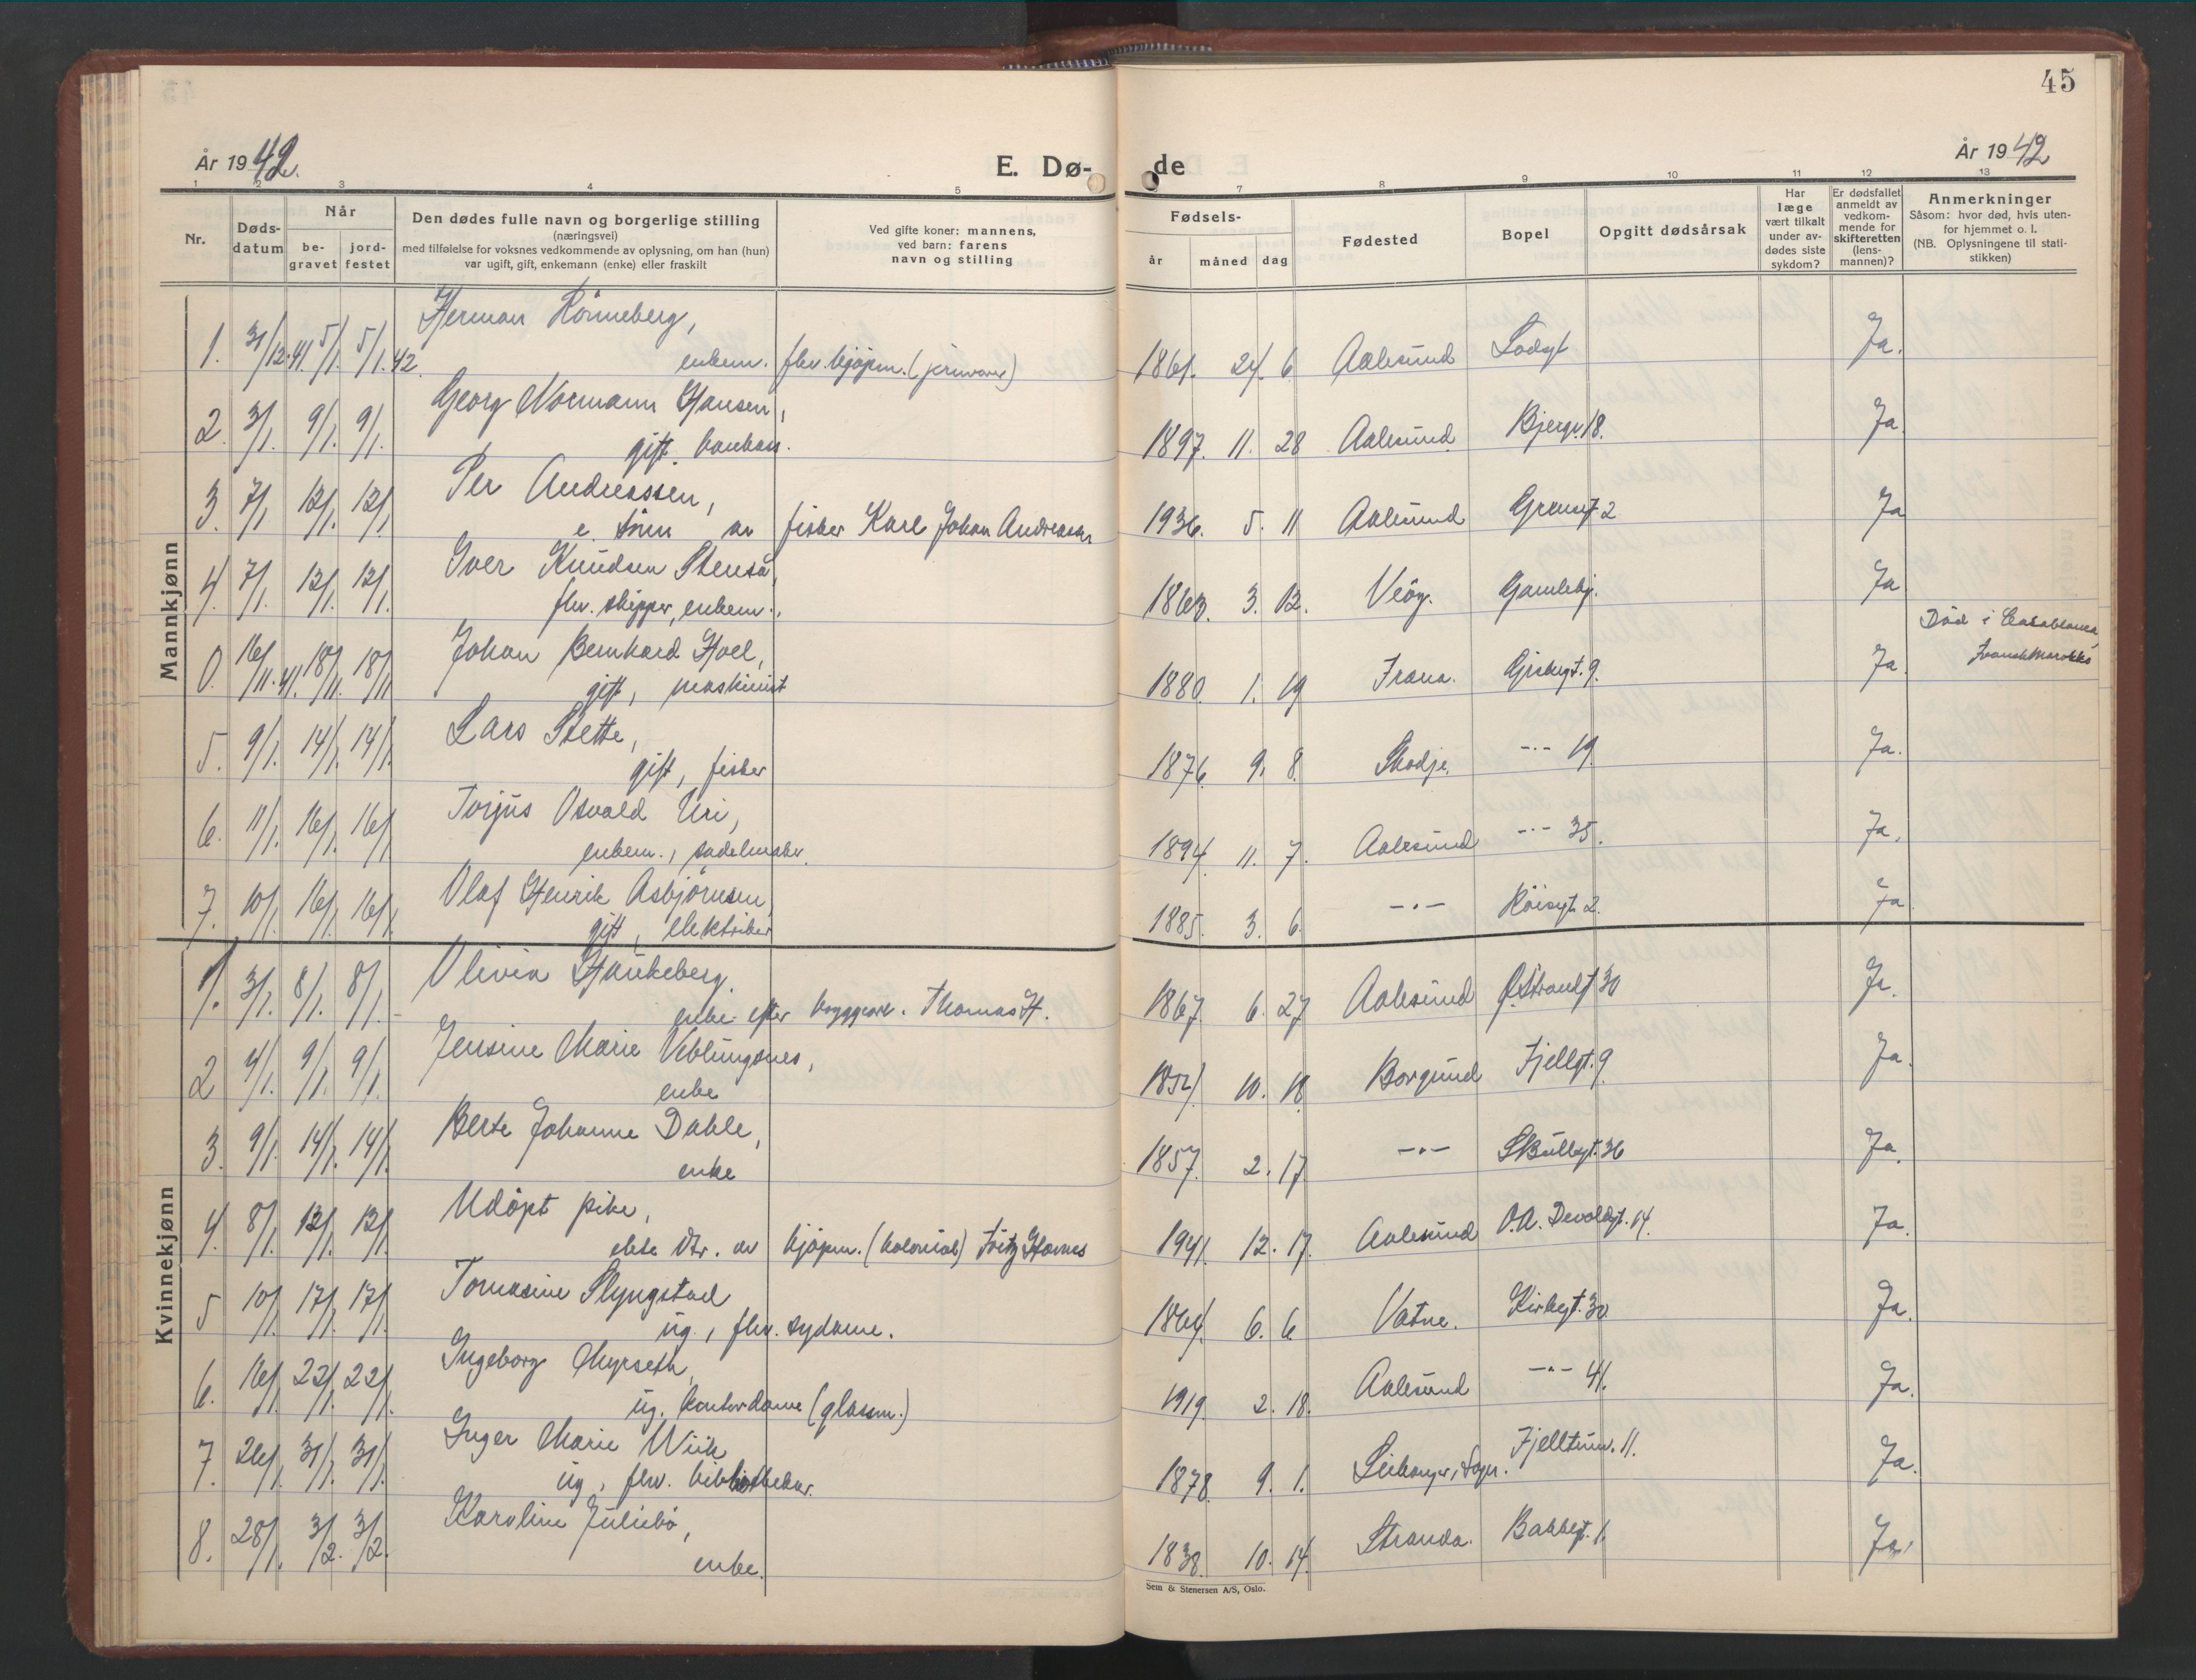 45
År 1942.
E. Dø-
de
År 1942
1 2 3 4 5 7 8 9 10 11 12 13
Nr.
Døds-
datum
Når
be-
gravet
jord-
festet
Den dødes fulle navn og borgerlige stilling
(næringsvei)
med tilføielse for voksnes vedkommende av oplysning, om han (hun)
var ugift, gift, enkemann (enke) eller fraskilt
Ved gifte koner: mannens,
ved barn: farens
navn og stilling
Fødsels-
år måned dag
Fødested
Bopel
Opgitt dødsårsak
Har
læge
vært tilkalt
under av-
dødes siste
sykdom?
Er dødsfallet
anmeldt av
vedkom-
mende for
skifteretten
(lens-
mannen)?
Anmerkninger
Såsom: hvor død, hvis uten-
for hjemmet o. l.
(NB. Oplysningene til stati-
stikken)
Mannkjønn
Herman Rönneberg,
1. 31/12.41. 5/1. 5/1.42. enkem. fhv. kjøpm. 1861. 24. 6 Aalesund Ja.
Georg Normann Hansen,
2. 3/1. 9/1. 9/1. gift. 1897. 11. 28 Aalesund. Bjergv. 18. Ja.
Per Andreassen,
3. 7/1 12/1. 12/1. e. sönn av fisker Karl Johan Andreassen 1936. 5. 11 Aalesund Ja
Iver Knudsen Stenså,
4. 7/1. 12/1. 12/1. fhv. skipper, enkem. 1863. 3. 12. Veöy. Gamlebj. Ja
Johan Bernhard Hoel,
0. 16/11.41. 18/11. 18/11 gift, maskinist 1880. 1. 19 Fræna. 9. Ja. Död i Casablanca, Fransk Marokko
Lars Stette,
5. 9/1. 14/1. 14/1. gift, fisker 1876. 9. 8. Skodje. -"- 19. Ja.
Torjus Osvald Uri,
6. 11/1. 16/1. 16/1. enkem., sadelmaker. 1894. 11. 7. Aalesund -"- 35. Ja.
Olaf Henrik Asbjörnsen,
7. 10/1. 16/1. 16/1. gift, elektriker 1885. 3. 6. -"- Röisgt. 2. Ja.
Kvinnekjønn
Olivia Haukeberg.
1. 3/1. 8/1. 8/1. enke efter bryggearb. Thomas H. 1867. 6. 27 Aalesund Ø. Strandgt 30 Ja.
Jensine Marie Veblungsnes,
2 4/1. 9/1. 9/1. enke 1854. 10. 18. Borgund Fjellgt. 9. Ja.
Berte Johanne Dahle,
3. 9/1. 14/1. 14/1. enke 1857. 2. 17. -"- Skullegt. 36 Ja.
Udöpt pike,
4. 8/1. 12/1. 12/1. ekte dtr. av kjøpm. (kolonial) Fritz 1941. 12. 17. Aalesund O.A. Devoldsgt. 14. Ja.
Tomasine Slyngstad
5 10/1. 17/1. 17/1. ug., fhv. sydame. 1864. 6. 6 Vatne. Kirkegt. 30 Ja.
Ingeborg Myrseth,
6. 16/1. 22/1. 22/1. ug. kontordame (glassm.) 1919. 2. 18. Aalesund -"- 41. Ja.
Inger Marie Wiik
7. 26/1. 31/1. 31/1. ug, fhv. bibliothekar. 1878. 9. 1. Leikanger i Sogn. Fjelltunv. 11. Ja.
Karoline Juliebö,
8. 28/1. 3/2. 3/2. enke. 1838. 10. 14. Stranda. Bakkegt. 1. Ja.
Sem & Stenersen A/S, Oslo.